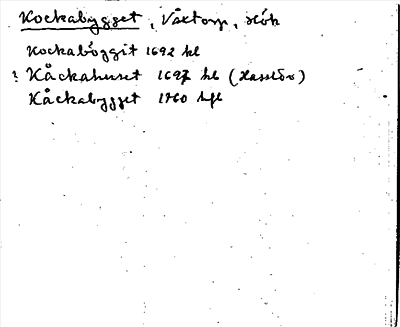 Kockabygget, Våxtorp, Hök
Kockaböggit 1692 kl
? Kåckahuset 1697 kl (Hasslöv)
Kåckabygget 1760 hfl